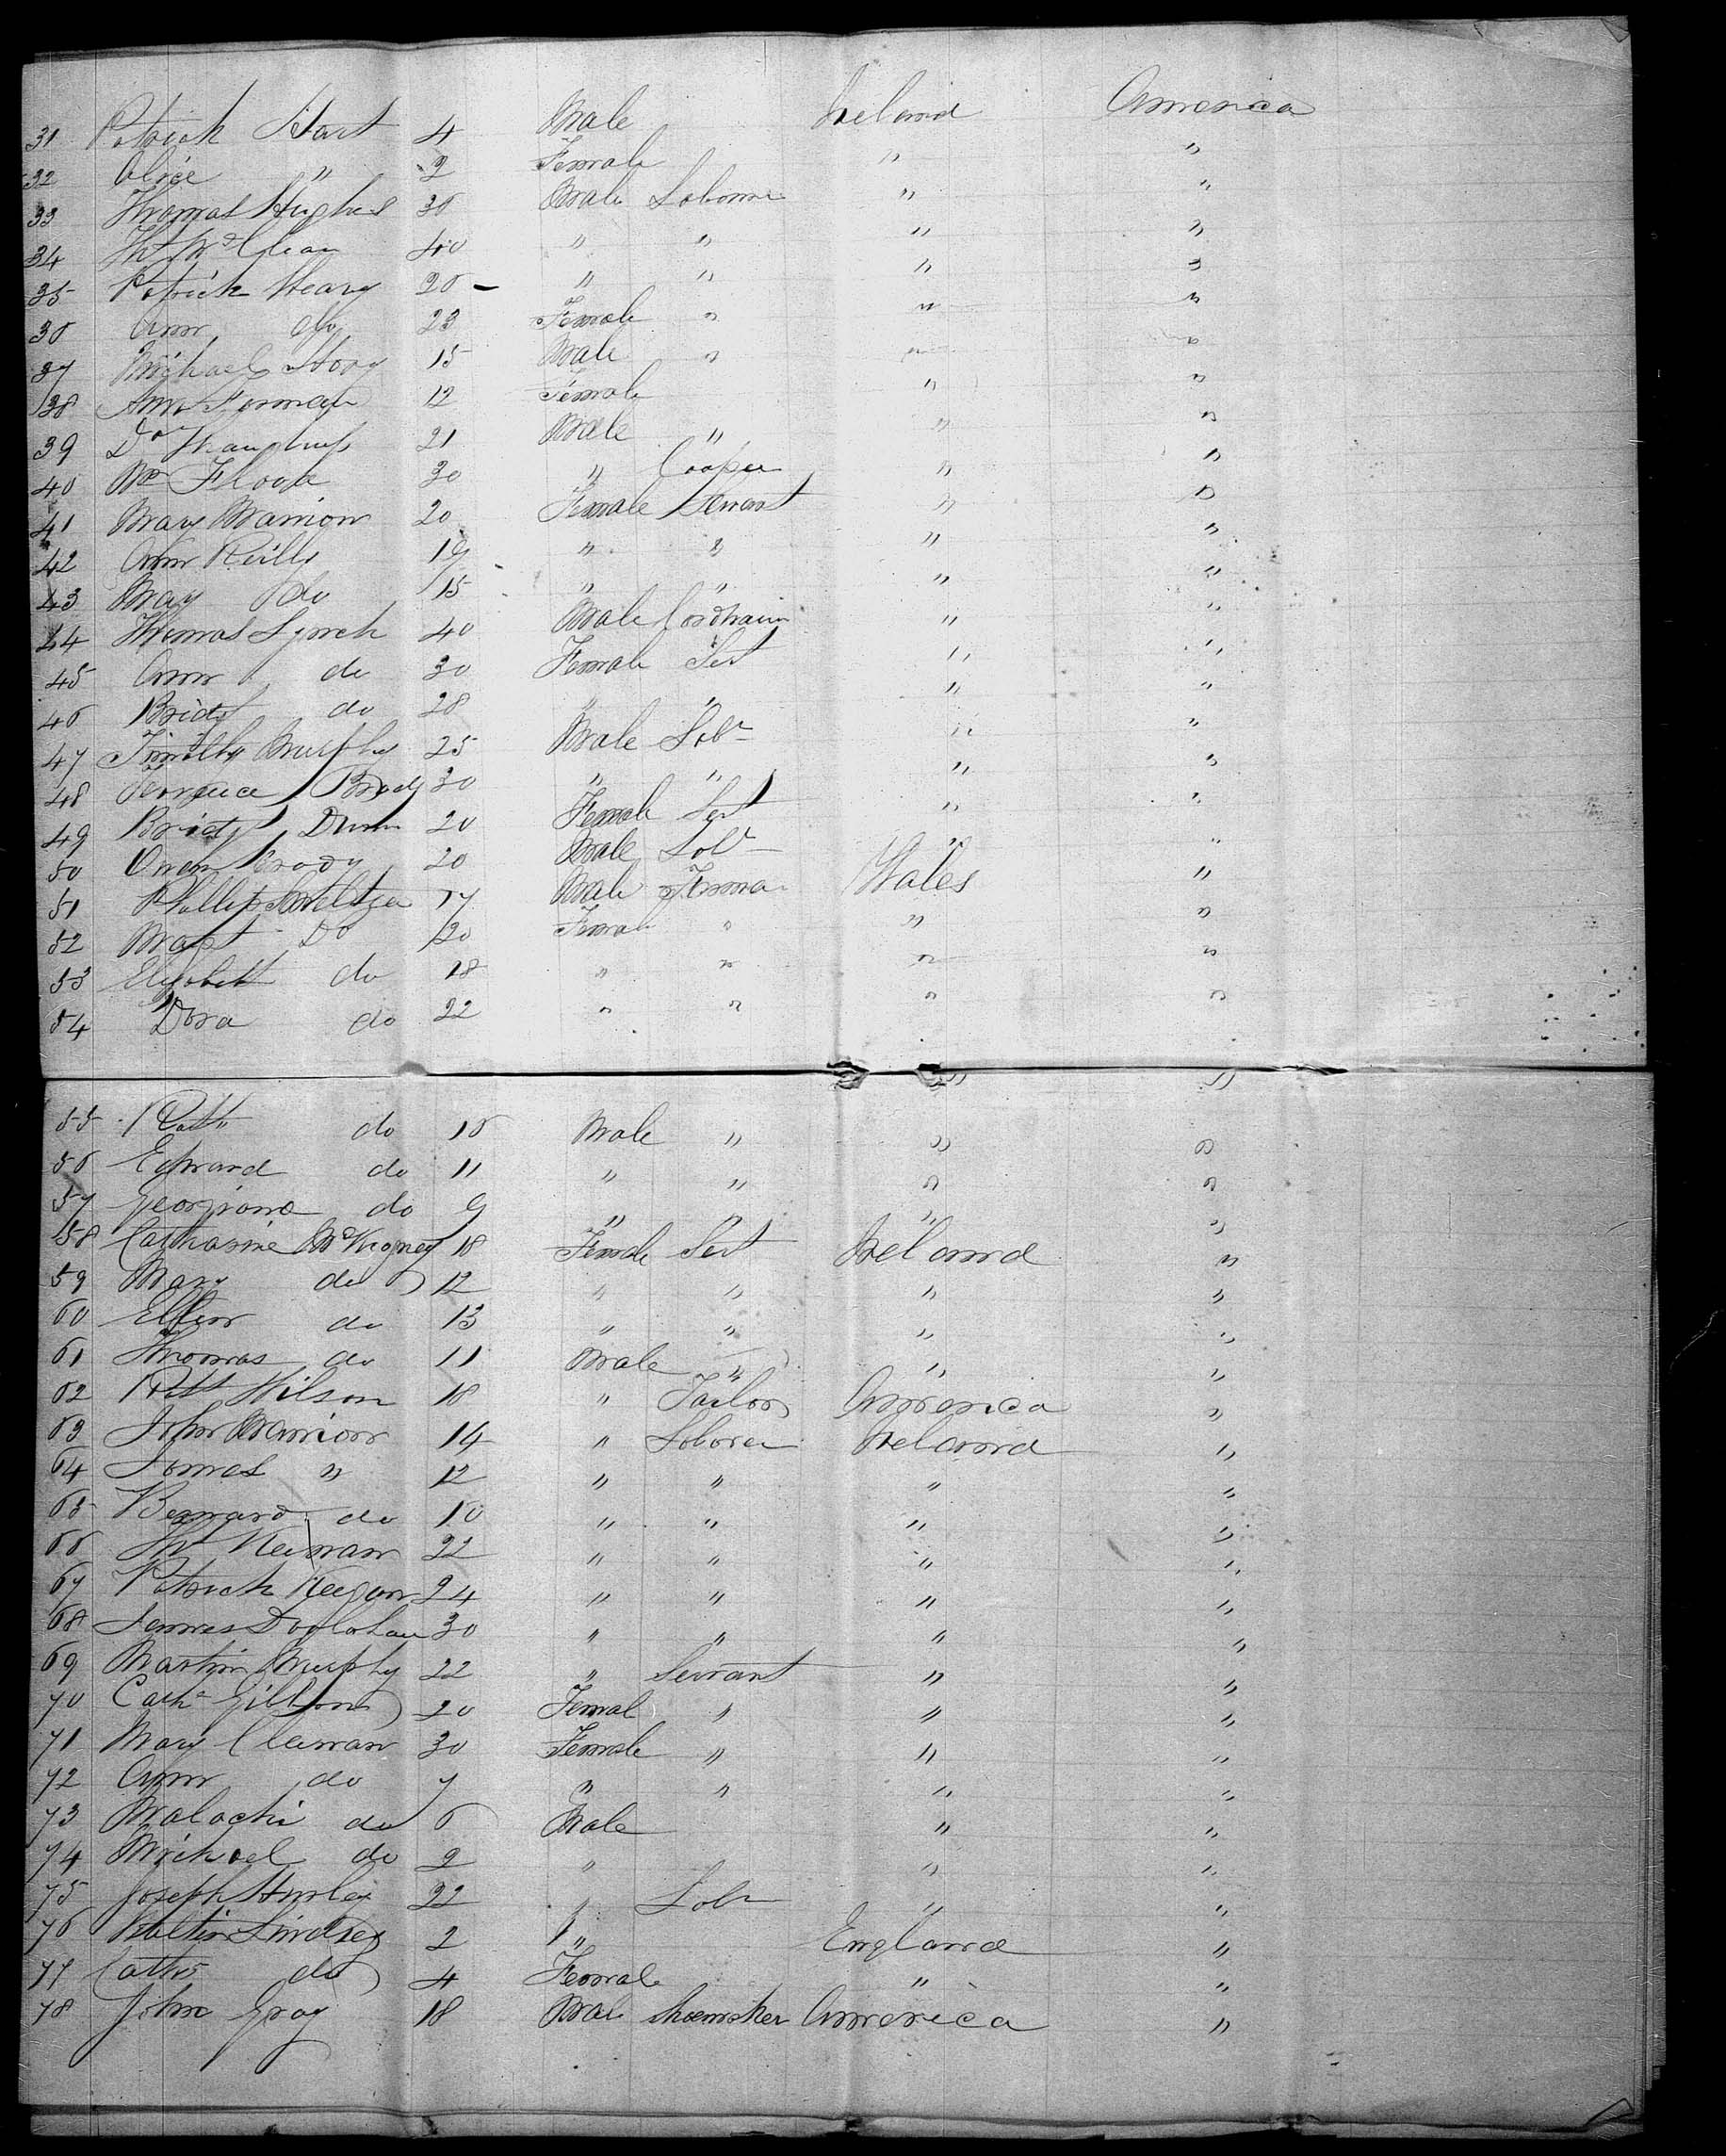 31 Patrick Hart 4 Male Ireland America
32 Alice " 2 Female " "
33 Thomas Hughes 36 Male Laborer " "
34 40 " " " "
35 Patrick Heavy 26 - " " " "
36 Ann do 23 Female " " "
37 Michael Story 15 Male " " "
38 Ann 12 Female " "
39 Do 21 Male " " "
40 Wm 30 " Cooper " "
41 Mary Mannion 20 Female Servant " "
42 Ann Reilly 19 " " " "
43 Mary do 15 " " " "
44 Thomas Lynch 40 Male " "
45 Ann do 30 Female Sert " "
46 Bridgt do 28 " " "
47 Timothy Murphy 25 Male Labr " "
48 Brody 30 " " " "
49 Bridgt Dunn 20 Female Sert " "
50 Owen Brody 20 Male Labr " "
51 Phillip 17 Male Wales "
52 Margt Do 20 Female " " "
53 Elizabeth do 18 " " " "
54 Dora do 22 " " " "
55 do 16 Male " " "
56 Edward do 11 " " " "
57 Georgiana do 9 " " " "
58 Catharine 18 Female Sert Ireland "
59 Mary do 12 " " " "
60 Ellen do 13 " " " "
61 Thomas do 11 Male " " "
62 Wilson 18 " Tailor America "
63 John Mannion 14 " Laborer Ireland "
64 James " 12 " " " "
65 Bernard do 10 " " " "
66 22 " " " "
67 Patrick Keegan 24 " " " "
68 James 30 " " " "
69 Martin Murphy 22 " Servant " "
70 Cath Gibbons 20 Femal " " "
71 Mary 30 Female " " "
72 Ann do 7 " " " "
73 Malachi do 6 Male " "
74 Michael do 2 " " "
75 Joseph Hurley 22 " Labr " "
76 Lindsey 2 " England "
77 Cath do 4 Female " "
78 John Gray 18 Male Shoemaker America "